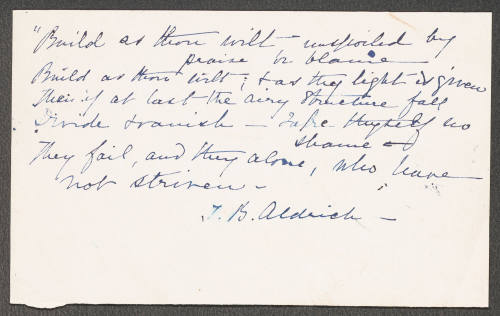 "Build as thou wilt - unspoiled by
praise or blame
Build as thou wilt; & as thy light is given
Then if at last the airy structure fall
Divide & vanish - Take thyself no
shame -
They fail, and they alone, who have
not striven -
T. B. Aldrich -